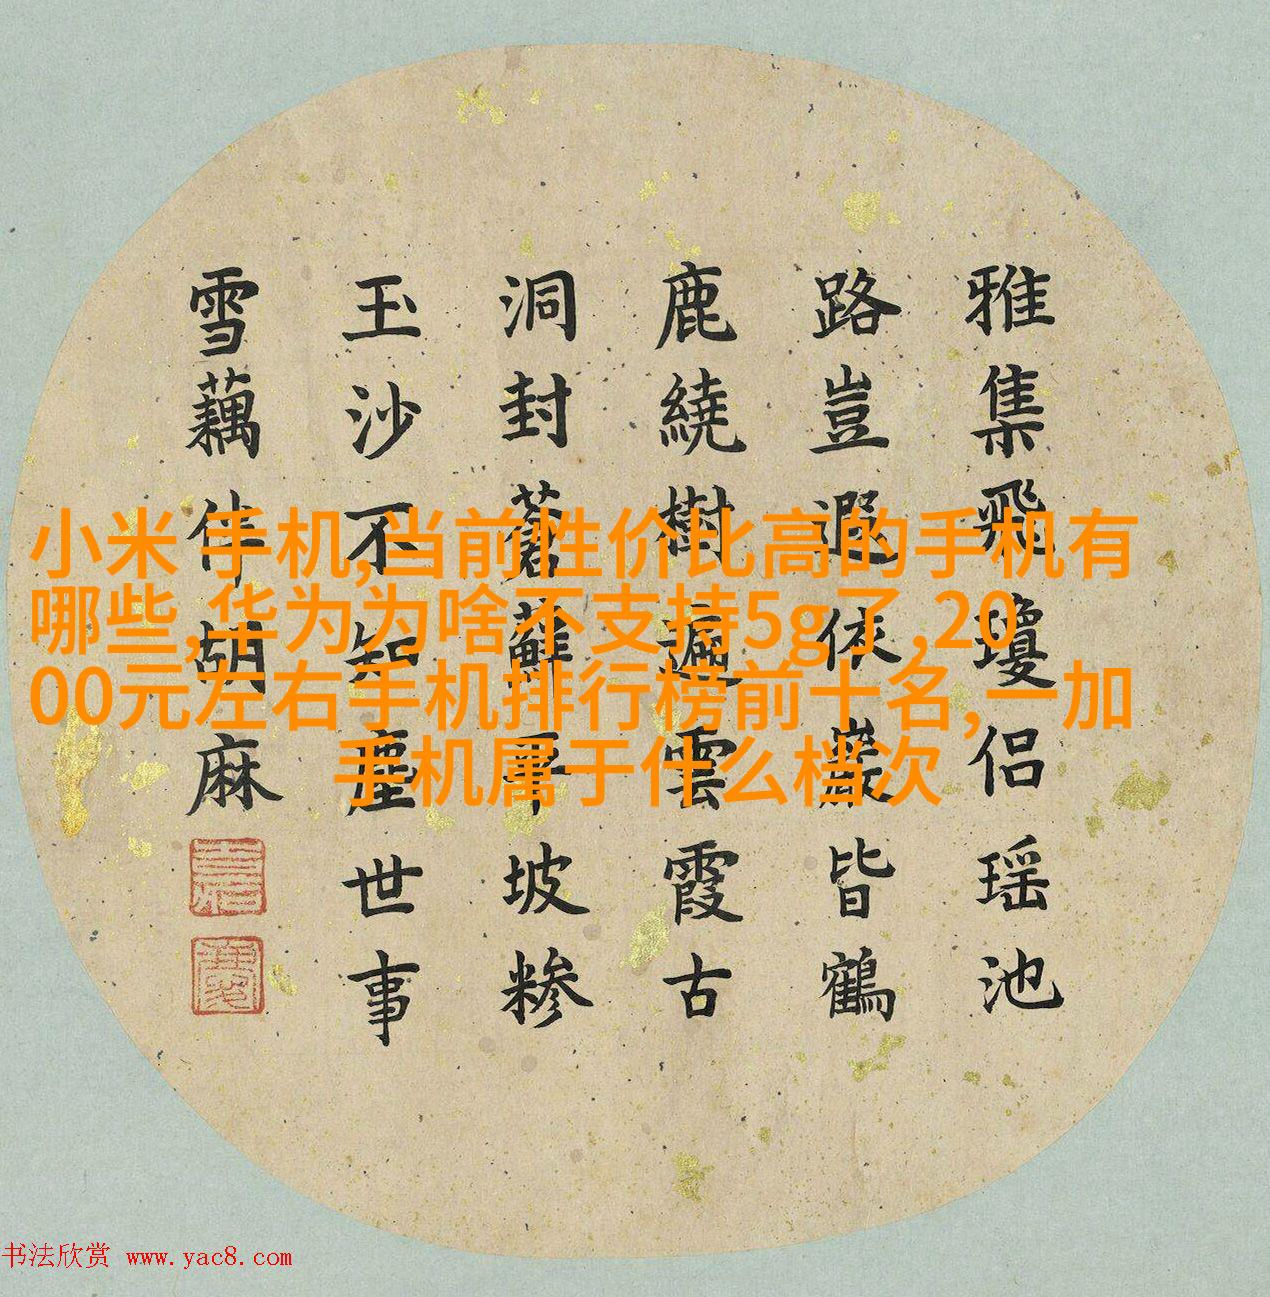 雅集飛瓊侶瑶池
路豈遐依巖皆鶴
鹿繞樹遍雲霞古
洞封蒼蘚平坡糁
玉沙不知塵世事
雪藕伴胡麻
小米 手机,当前性价比高的手机有
哪些,华为为啥不支持5g了,20
00元左右手机排行榜前十名,一加
手机属于什么档次
书法欣赏 www.yac8.com